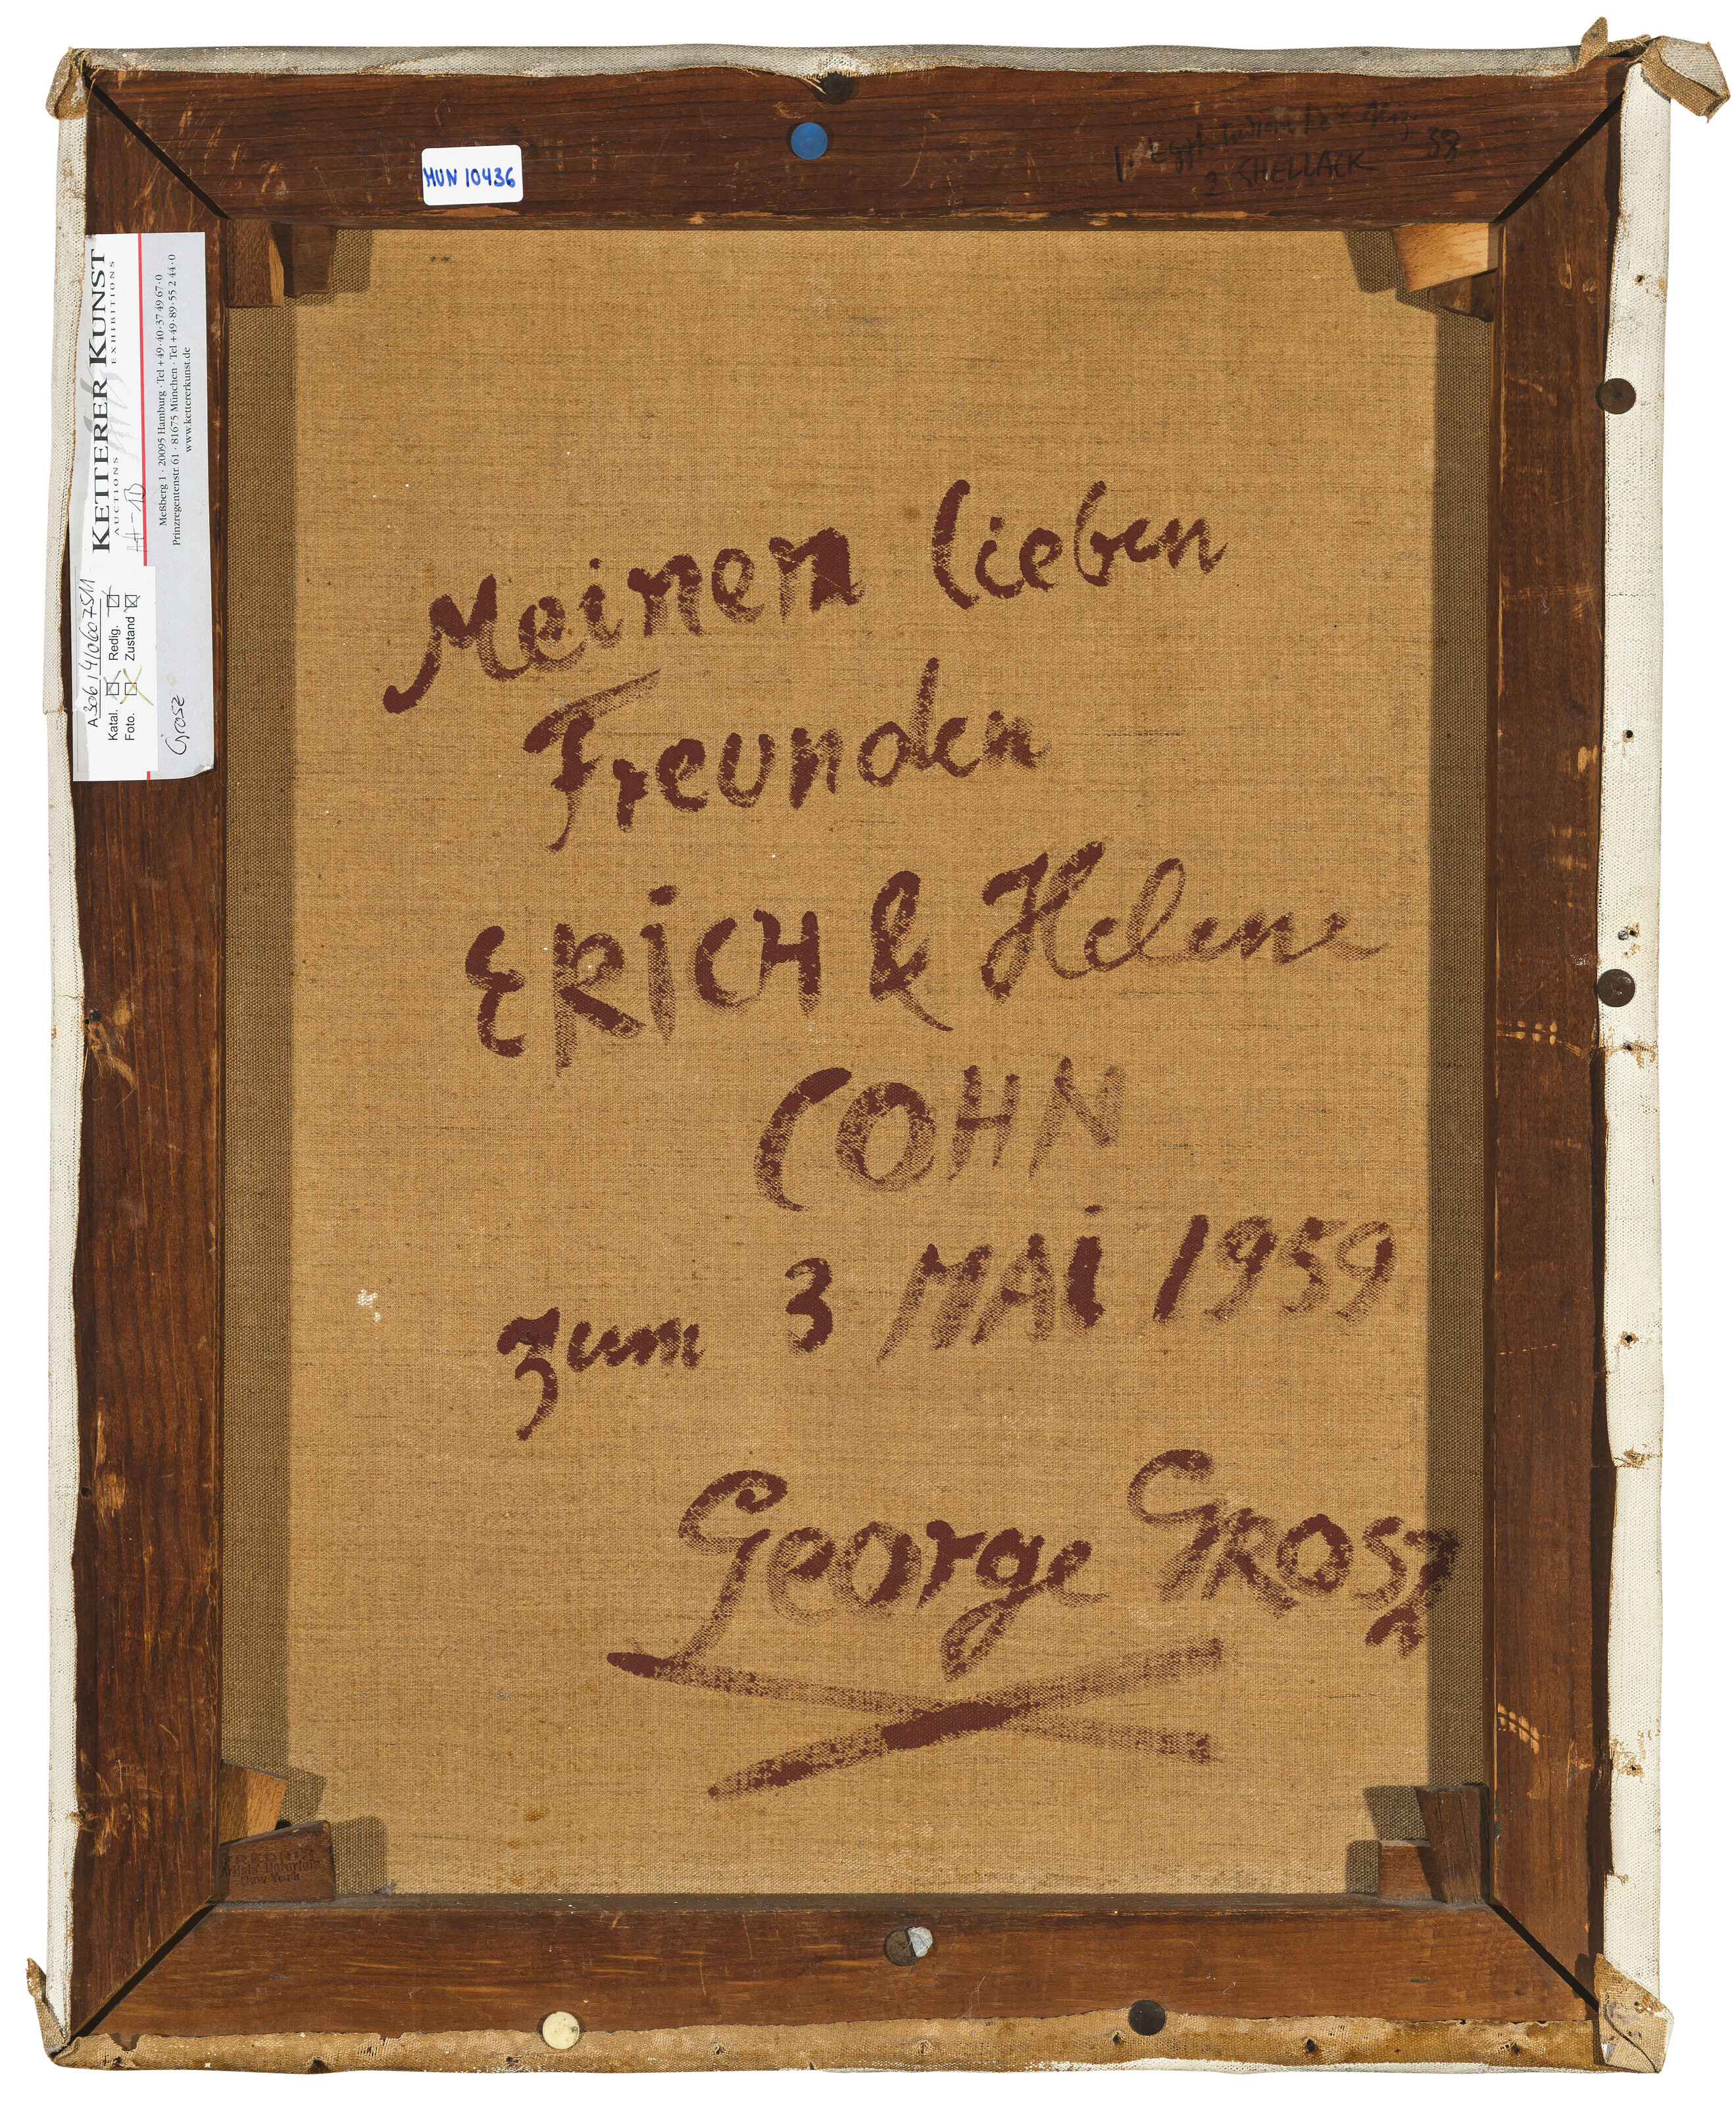 HUN 10436
2 SHELLACK 38
KETTERER KUNST
AUCTIONS EXHIBITIONS
Meßberg 1 · 20095 Hamburg · Tel +49·40·37 49 67·0
Prinzregentenstr. 61 · 81675 München · Tel +49·89·55 2 44·0
www.kettererkunst.de
A 306 / 410607511
Katal. Redig.
Foto. Zustand
Grosz
Meinen lieben
Freunden
ERiCH & Helene
COHN
zum 3 MAi 1959
George GROSz
New York